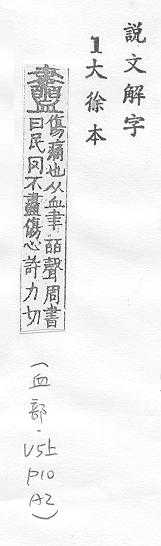 說文解字
1大徐本
衋
傷痛也从血聿皕聲周書
曰民罔不衋傷心許力切
(血部.V5上
P10
A2)